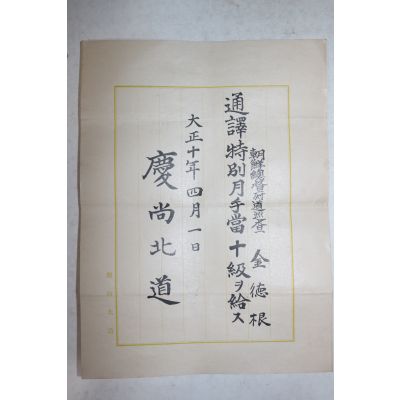 朝鮮總督府道巡査 金德根
通譯特別月手當十級ヲ給ス
大正十年四月一日
慶尚北道